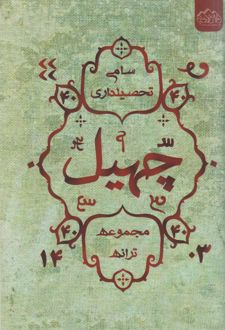 سامی
تحصیلداری
۴۰ ۴۰
چهیل
۴۰ ۴۰
مجموعه
ترانه
۱۴۰۳